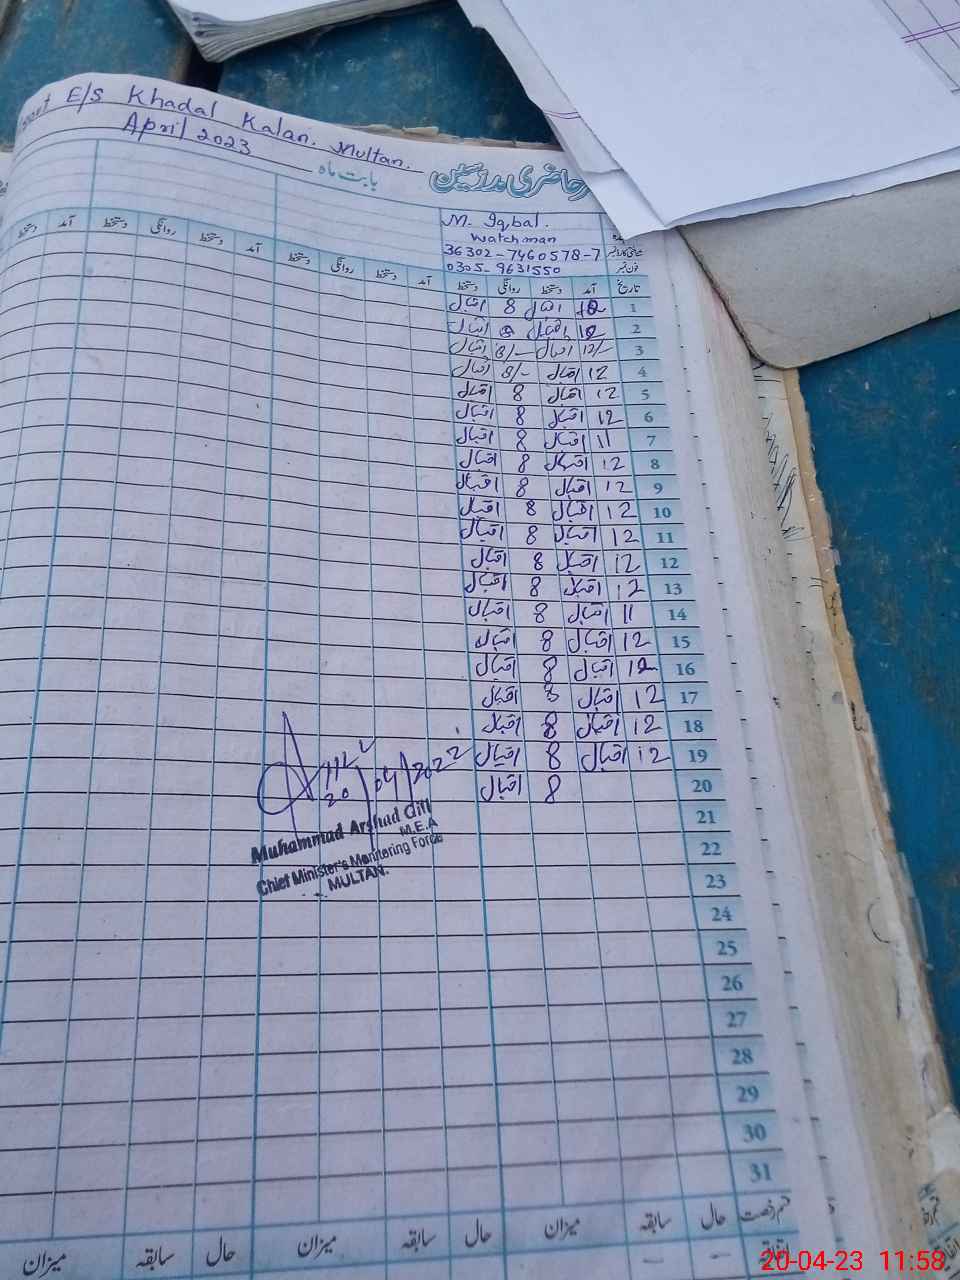 E/S Khadal Kalan. Multan.
April 2023
بابت ماہ
حاضری مدرسین
M. Iqbal.
Watchman
36302-7460578-7
0305-9631550
فون نمبر
تاریخ آمد دستخط روانگی دستخط آمد دستخط روانگی دستخط آمد دستخط روانگی دستخط آمد دستخط
1 12 اقبال 8 اقبال
2 12 اقبال 8 اقبال
3 12/- اقبال 8/- اقبال
4 12 اقبال 8/- اقبال
5 12 اقبال 8 اقبال
6 12 اقبال 8 اقبال
7 11 اقبال 8 اقبال
8 12 اقبال 8 اقبال
9 12 اقبال 8 اقبال
10 12 اقبال 8 اقبال
11 12 اقبال 8 اقبال
12 12 اقبال 8 اقبال
13 12 اقبال 8 اقبال
14 11 اقبال 8 اقبال
15 12 اقبال 8 اقبال
16 12 اقبال 8 اقبال
17 12 اقبال 8 اقبال
18 12 اقبال 8 اقبال
19 12 اقبال 8 اقبال
20 8 اقبال
20/04/2022
Muhammad Arshad Gill
M.E.A
Chief Minister's Monitering Force
MULTAN.
21
22
23
24
25
26
27
28
29
30
31
قسم رخصت حال سابقہ میزان حال سابقہ میزان حال سابقہ میزان
20-04-23 11:58